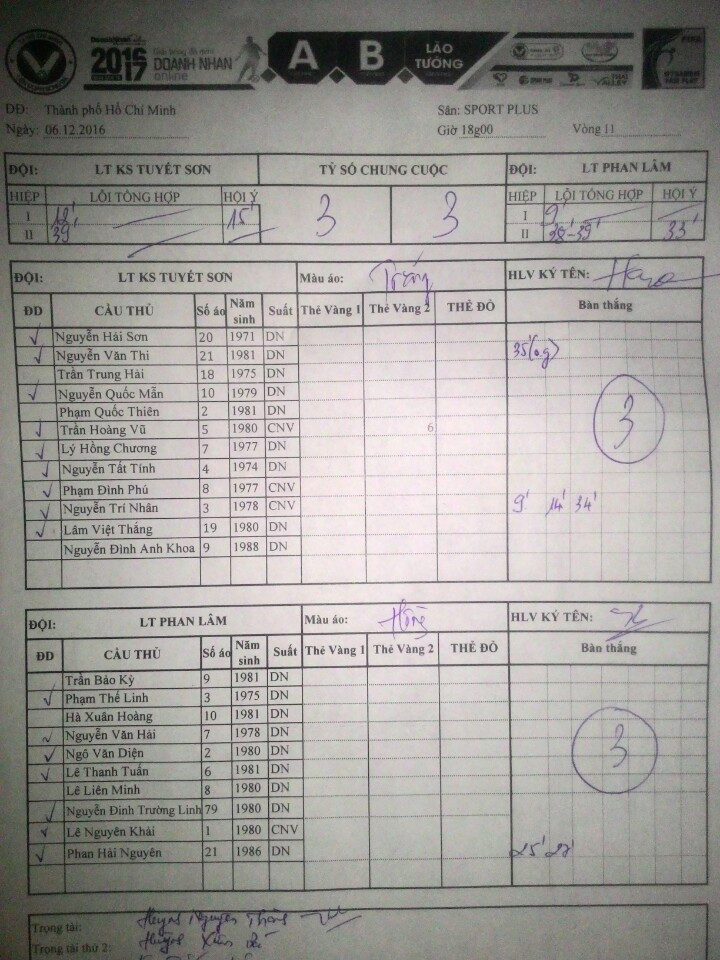 2016 2017 DOANH NHAN online A B LÃO TƯỚNG
DĐ: Thành phố Hồ Chí Minh Sân: SPORT PLUS
Ngày: 06.12.2016 Giờ 18g00 Vòng 11
ĐỘI: LT KS TUYẾT SƠN TỶ SỐ CHUNG CUỘC ĐỘI: LT PHAN LÂM
HIỆP LỖI TỔNG HỢP HỘI Ý 3 3 HIỆP LỖI TỔNG HỢP HỘI Ý
I 12' 15' I 9'
II 39' II 38'-39' 33'
ĐỘI: LT KS TUYẾT SƠN Màu áo: Trắng HLV KÝ TÊN:
ĐD CẦU THỦ Số áo Năm sinh Suất Thẻ Vàng 1 Thẻ Vàng 2 THẺ ĐỎ Bàn thắng
Nguyễn Hải Sơn 20 1971 DN
Nguyễn Văn Thi 21 1981 DN 35'(o.g)
Trần Trung Hải 18 1975 DN
Nguyễn Quốc Mẫn 10 1979 DN
Phạm Quốc Thiên 2 1981 DN 3
Trần Hoàng Vũ 5 1980 CNV 6
Lý Hồng Chương 7 1977 DN
Nguyễn Tất Tính 4 1974 DN
Phạm Đình Phú 8 1977 CNV
Nguyễn Trí Nhân 3 1978 CNV 9' 14' 34'
Lâm Việt Thắng 19 1980 DN
Nguyễn Đình Anh Khoa 9 1988 DN
ĐỘI: LT PHAN LÂM Màu áo: Hồng HLV KÝ TÊN:
ĐD CẦU THỦ Số áo Năm sinh Suất Thẻ Vàng 1 Thẻ Vàng 2 THẺ ĐỎ Bàn thắng
Trần Bảo Kỳ 9 1981 DN
Phạm Thế Linh 3 1975 DN
Hà Xuân Hoàng 10 1981 DN
Nguyễn Văn Hải 7 1978 DN
Ngô Văn Diện 2 1980 DN 3
Lê Thanh Tuấn 6 1981 DN
Lê Liên Minh 8 1980 DN
Nguyễn Đinh Trường Linh 79 1980 DN
Lê Nguyên Khải 1 1980 CNV
Phan Hải Nguyên 21 1986 DN 25' 27'
Trọng tài:
Trọng tài thứ 2: